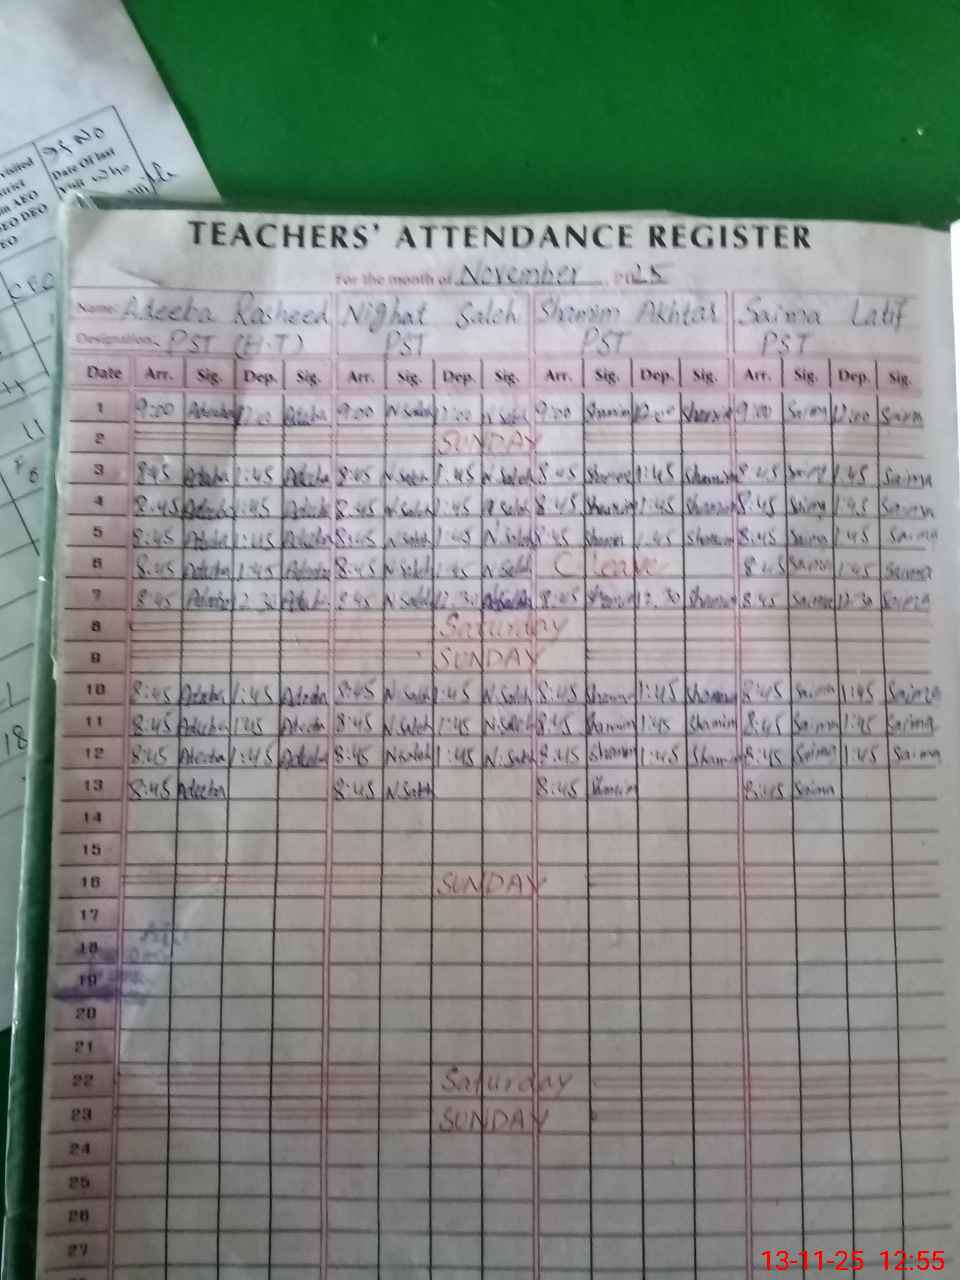 visited
trict
AEO
DEO
EO
95 NO
Date Of last
Visit who
CEO
11
18
TEACHERS' ATTENDANCE REGISTER
For the month of November 2025
Name: Adeeba Rasheed Nighat Saleh Shamim Akhtar Saima Latif
Designation. PST (H.T) PST PST PST
Date Arr. Sig. Dep. Sig. Arr. Sig. Dep. Sig. Arr. Sig. Dep. Sig. Arr. Sig. Dep. Sig.
1 9:00 Adeeba 12:00 Adeeba 9:00 N.Saleh 12:00 N.Saleh 9:00 Shamim 12:00 Shamim 9:00 Saima 12:00 Saima
2 SUNDAY
3 8:45 Adeeba 1:45 Adeeba 8:45 N.Saleh 1:45 N.Saleh 8:45 Shamim 1:45 Shamim 8:45 Saima 1:45 Saima
4 8:45 Adeeba 1:45 Adeeba 8:45 N.Saleh 1:45 N.Saleh 8:45 Shamim 1:45 Shamim 8:45 Saima 1:45 Saima
5 8:45 Adeeba 1:45 Adeeba 8:45 N.Saleh 1:45 N.Saleh 8:45 Shamim 1:45 Shamim 8:45 Saima 1:45 Saima
6 8:45 Adeeba 1:45 Adeeba 8:45 N.Saleh 1:45 N.Saleh C.leave 8:45 Saima 1:45 Saima
7 8:45 Adeeba 12:30 Adeeba 8:45 N.Saleh 12:30 N.Saleh 8:45 Shamim 12:30 Shamim 8:45 Saima 12:30 Saima
8 Saturday
9 SUNDAY
10 8:45 Adeeba 1:45 Adeeba 8:45 N.Saleh 1:45 N.Saleh 8:45 Shamim 1:45 Shamim 8:45 Saima 1:45 Saima
11 8:45 Adeeba 1:45 Adeeba 8:45 N.Saleh 1:45 N.Saleh 8:45 Shamim 1:45 Shamim 8:45 Saima 1:45 Saima
12 8:45 Adeeba 1:45 Adeeba 8:45 N.Saleh 1:45 N.Saleh 8:45 Shamim 1:45 Shamim 8:45 Saima 1:45 Saima
13 8:45 Adeeba 8:45 N.Saleh 8:45 Shamim 8:45 Saima
14
15
16 SUNDAY
17
18
19
20
21
22 Saturday
23 SUNDAY
24
25
26
27
13-11-25 12:55